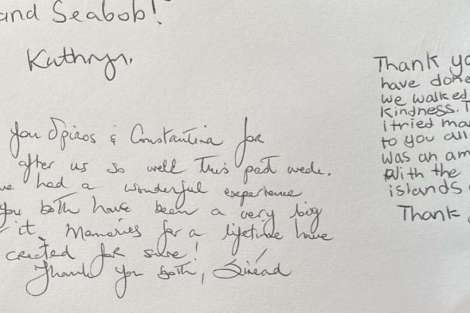 and Seabob!
Kathryn.
You Spiros & Constantina for
after us so well this past week.
we had a wonderful experience
you both have been a very big
it, memories for a lifetime have
created for sure!
Thank you both, Sinéad
Thank yo
have done
we walked
Kindness.
i tried ma
to you all
was an am
with the
islands
Thank